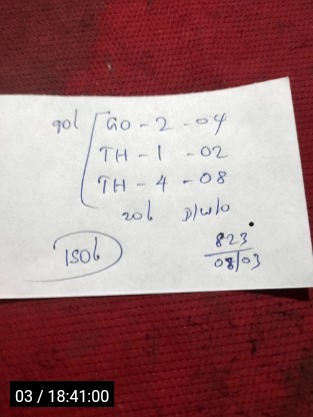 90l GO - 2 - 04
TH - 1 - 02
TH - 4 - 08
20l D/W/O
150l
823
08/03
03 / 18:41:00